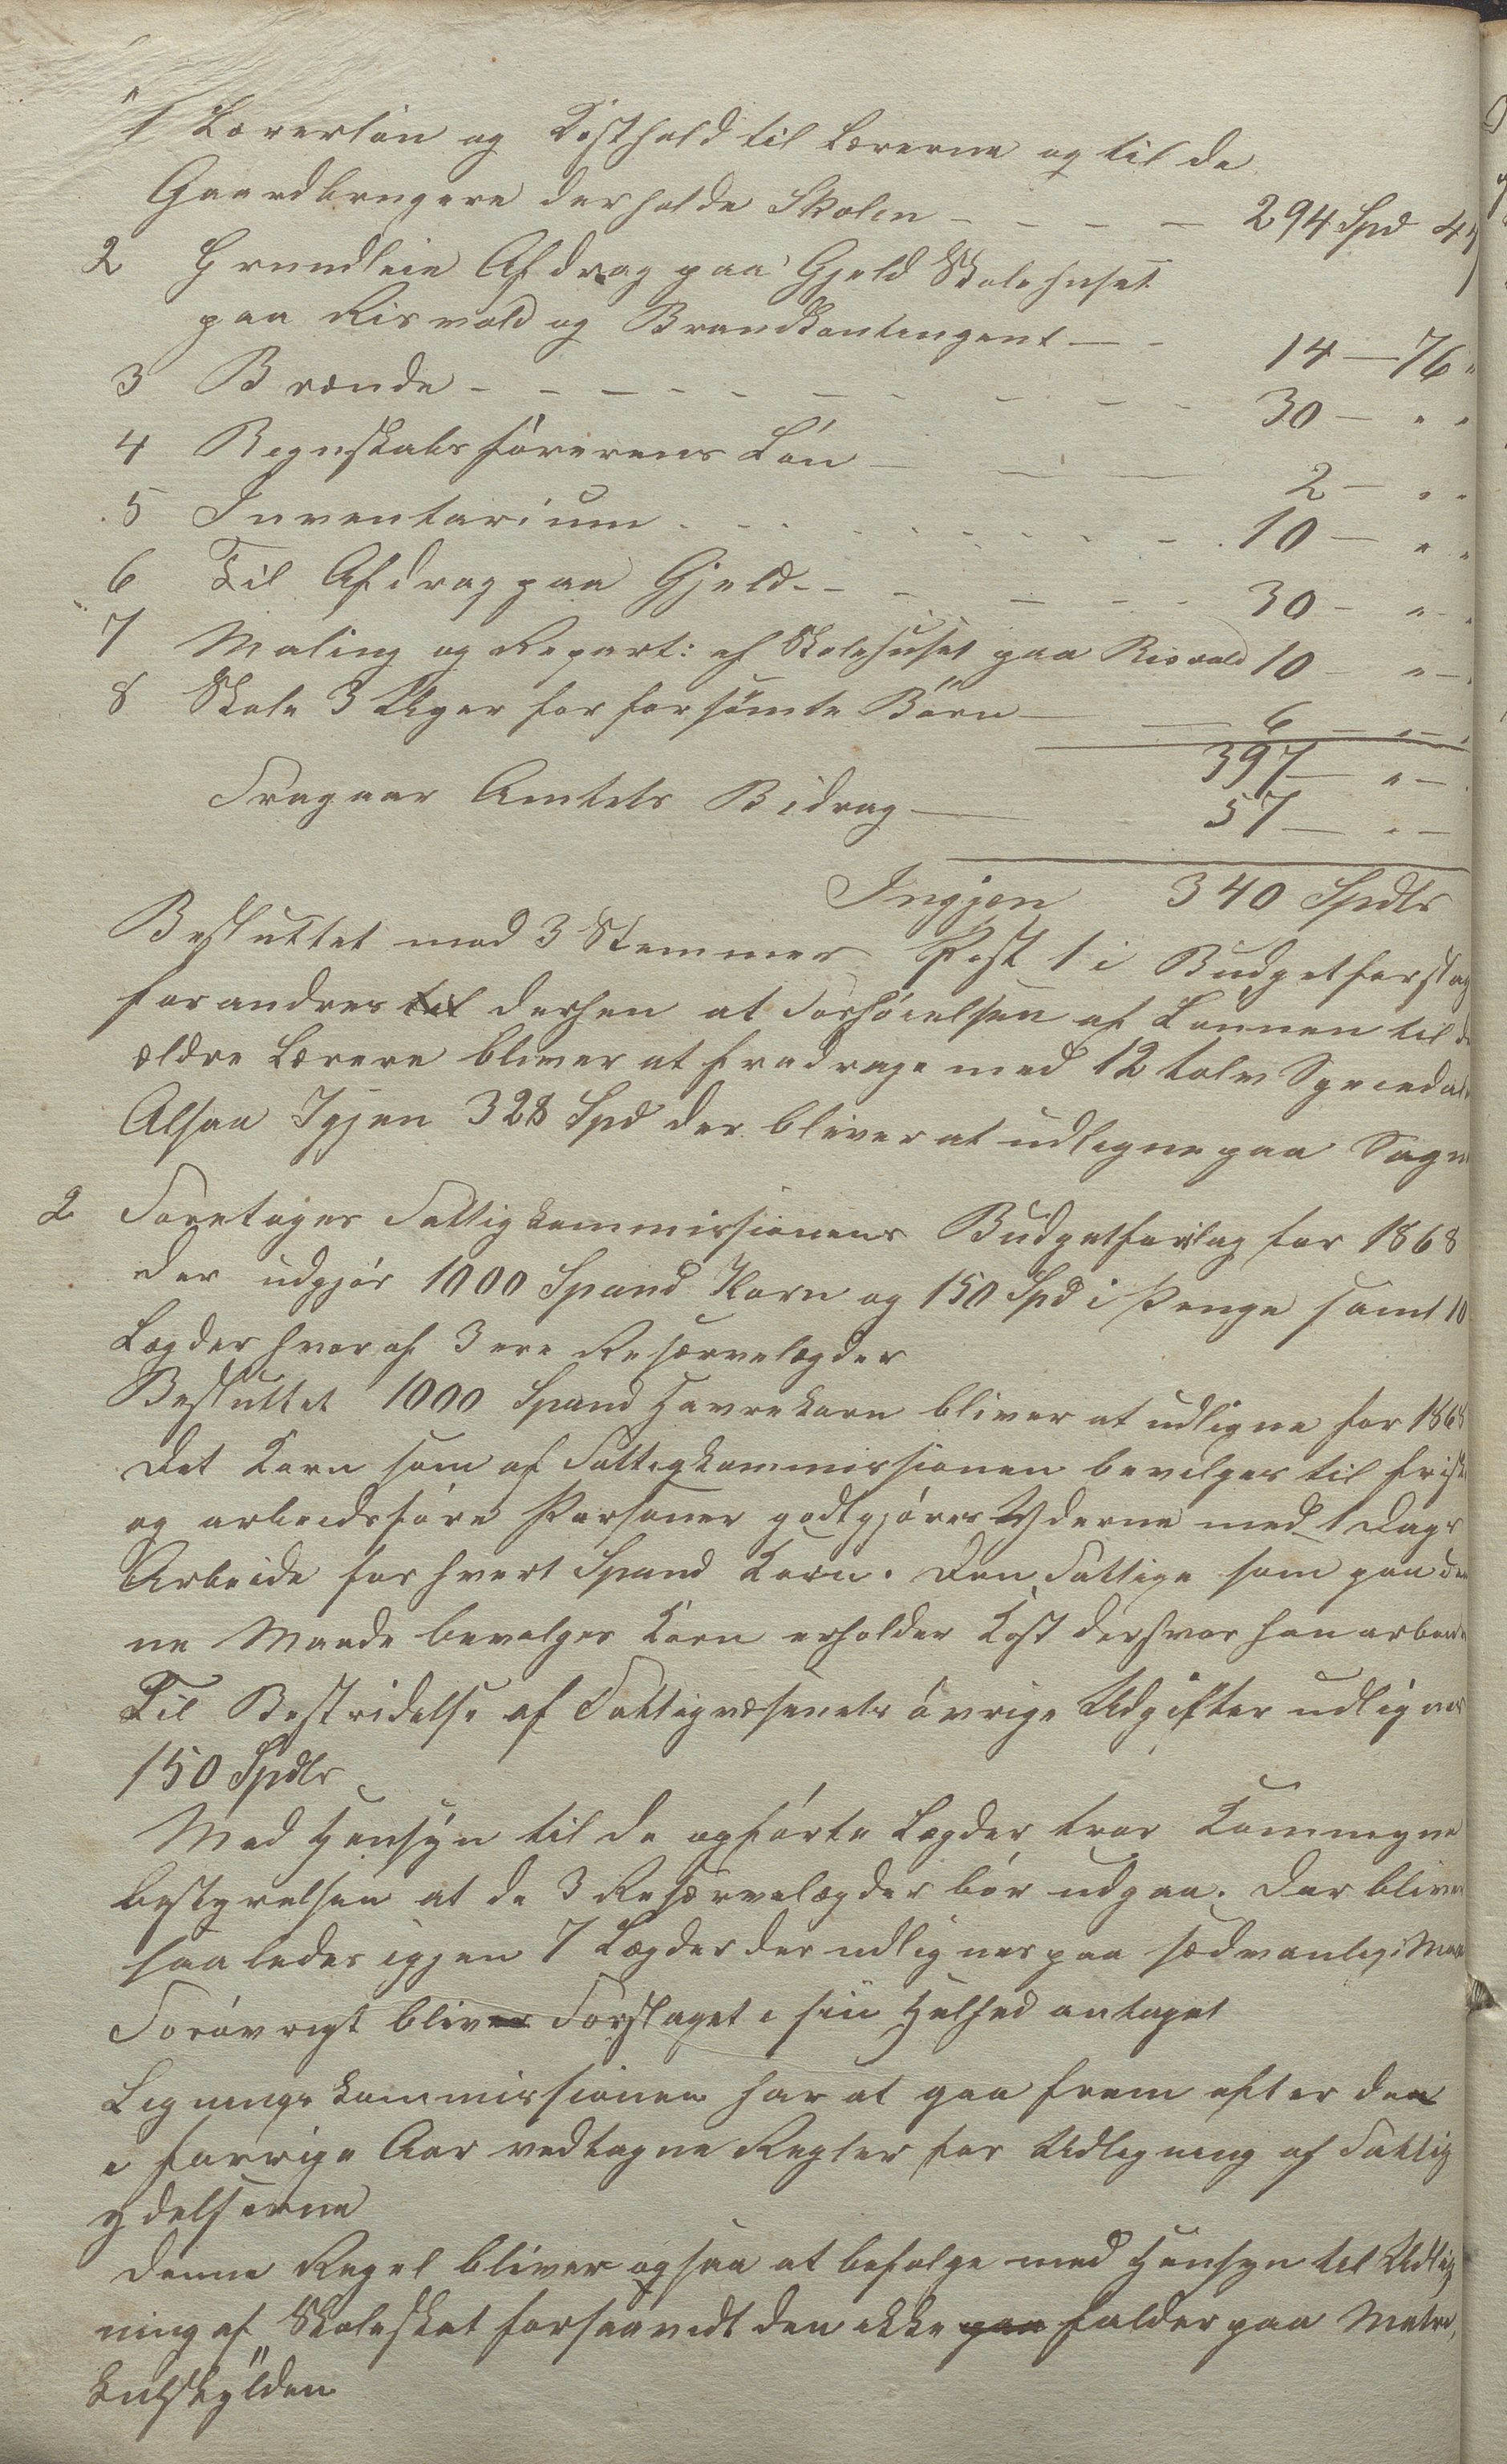 1 Lærerløn og Kosthold til Lærerne og til de
Gaardbrugere der holde Skolen - - - - 294 Spd 44
2 Grundleie Afdrag paa Gjeld Skolehuset
paa Risvold og Brandkontingent - - 14 - 76 "
3 Brænde - - - - - - - - - 30 - " "
4 Regnskabsførerens Løn - - - 2 - " "
5 Inventarium - - - - - - - 10 - " "
6 Til Afdrag paa Gjeld - - - - - 30 - " "
7 Maling og Repart: af Skolehuset paa Risvold 10 - " -
8 Skole 3 Uger for forsømte Børn - - 6 - " -
397 - " -
Fragaar Amtets Bidrag - 57 - " -
Ingjen 340 Spdlr
Besluttet med 3 Stemmer Post 1 i Budgetforslag
forandres til derhen at Forhøielsen af Lønnen til de
ældre Lærere bliver at fradrage med 12 tolv Speciedaler
Altsaa Igjen 328 Spd der bliver at udligne paa Sogn
2 Foretoges Fattigkommissionens Budgetforslag for 1868
der udgjør 1000 Spand Korn og 150 Spd i Penge samt 10
Lægder hvoraf 3 ere Reservelægder
Besluttet 1000 Spand Havrekorn bliver at udligne for 1868
Det Korn som af Fattigkommissionen bevilges til friske
og arbeidsføre Personer godtgjøres Yderne med 1 Dags
Arbeide for hvert Spand Korn. Den Fattige som paa den
ne Maade bevilges Korn erholder Kost derhvor han arbeide
Til Bestridelse af Fattigvæsenets øvrige Udgifter udlignes
150 Spdlr
Med Hensyn til de opførte Lægder tror Kommune
bestyrelsen at de 3 Reservelægder bør udgaa. Der bliver
saaledes igjen 7 Lægder der udlignes paa sædvanlig Maade
Forøvrigt bliver Forslaget i sin Helhed antaget
Ligningskommissionen har at gaa frem efter den
i forrige Aar vedtagne Regler for Udligning af Fattig
ydelserne
Denne Regel bliver ogsaa at befolge med Hensyn til Udlig
ning af Skoleskat forsaavidt den ikke paa falder paa Matri,
kulskylden